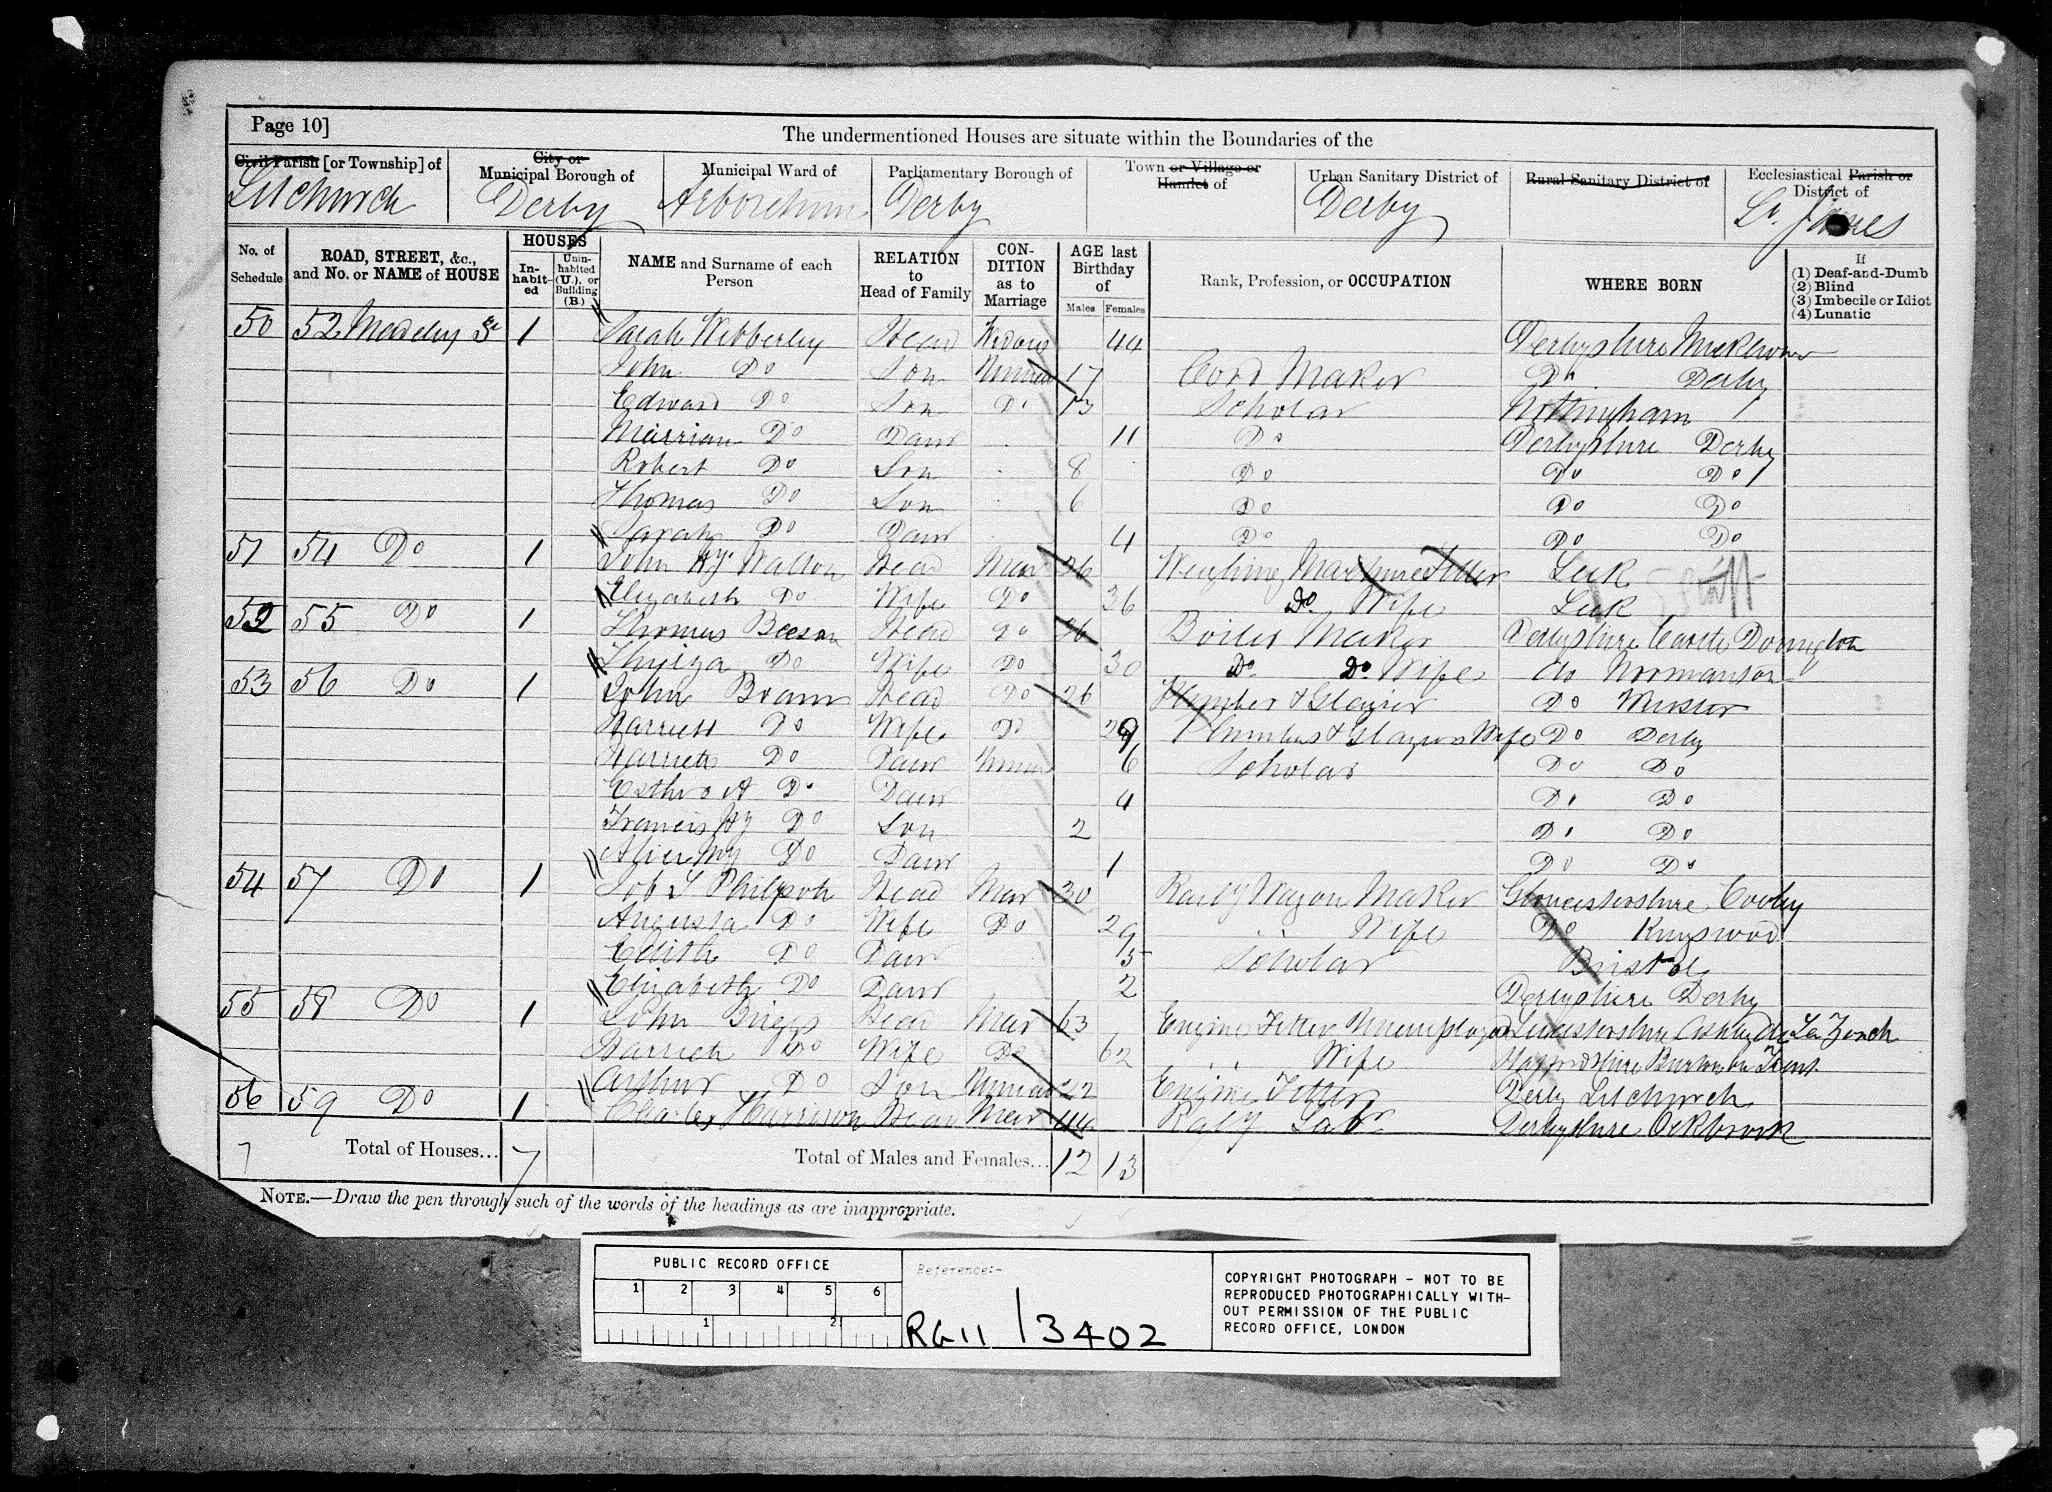 Page 10]
The undermentioned Houses are situate within the Boundaries of the
Civil Parish [or Township] of
City or Municipal Borough of
Municipal Ward of
Parliamentary Borough of
Town or Village or Hamlet of
Urban Sanitary District of
Rural Sanitary District of
Ecclesiastical Parish or District of
Litchurch Derby Arboretum Derby Derby St. James
No. of Schedule
ROAD, STREET, &c., and No. or NAME of HOUSE
HOUSES
In-habit-ed
Unin-habited (U.), or Building (B.)
NAME and Surname of each Person
RELATION to Head of Family
CON-DITION as to Marriage
AGE last Birthday of
Males Females
Rank, Profession, or OCCUPATION
WHERE BORN
If
(1) Deaf-and-Dumb
(2) Blind
(3) Imbecile or Idiot
(4) Lunatic
50 52 Madeley St 1 Sarah Wibberley Head Widow 44 Derbyshire Mickleover
John Do Son Unmar 17 Cord Maker Do Derby
Edward Do Son Do 13 Scholar Nottingham
Marrian Do Daur 11 Do Derbyshire Derby
Robert Do Son 8 Do Do Do
Thomas Do Son 6 Do Do Do
Sarah Do Daur 4 Do Do Do
51 54 Do 1 John Hy. Walton Head Mar 36 Weighing Machine Fitter Leek Staff
Elizabeth Do Wife Do 36 Do Wife Leek
52 55 Do 1 Thomas Beeson Head Do 36 Boiler Maker Derbyshire Castle Donington
Do Wife Do 30 Do Do Wife do Normanton
53 56 Do 1 John Head Do 26 Plumber & Glazier Do
Harriett Do Wife Do 29 Plumbers & Glaziers Wife Do Derby
Harriett Do Daur Unmar 6 Scholar Do Do
Esther A Do Daur 4 Do Do
Francis Hy Do Son 2 Do Do
Alice My Do Daur 1 Do Do
54 57 Do 1 Job Philpott Head Mar 30 Railwy Wagon Maker Gloucestershire
Augusta Do Wife Do 29 Wife Do Kingswood
Edith Do Daur 5 Scholar Bristol
Elizabeth Do Daur 2 Derbyshire Derby
55 58 Do 1 John Briggs Head Mar 63 Engine Fitter Unemployed Leicestershire Ashby de La Zouch
Harriett Do Wife Do 62 Wife Staffordshire Burton on Trent
Arthur Do Son Unmar 22 Engine Fitter Derby Litchurch
56 59 Do 1 Charles Harrison Head Mar 44 Raly Labr Derbyshire Ockbrook
7 Total of Houses... 7 Total of Males and Females... 12 13
NOTE.—Draw the pen through such of the words of the headings as are inappropriate.
PUBLIC RECORD OFFICE
1 2 3 4 5 6
1 2
Reference:-
RG11 / 3402
COPYRIGHT PHOTOGRAPH - NOT TO BE
REPRODUCED PHOTOGRAPHICALLY WITH-
OUT PERMISSION OF THE PUBLIC
RECORD OFFICE, LONDON